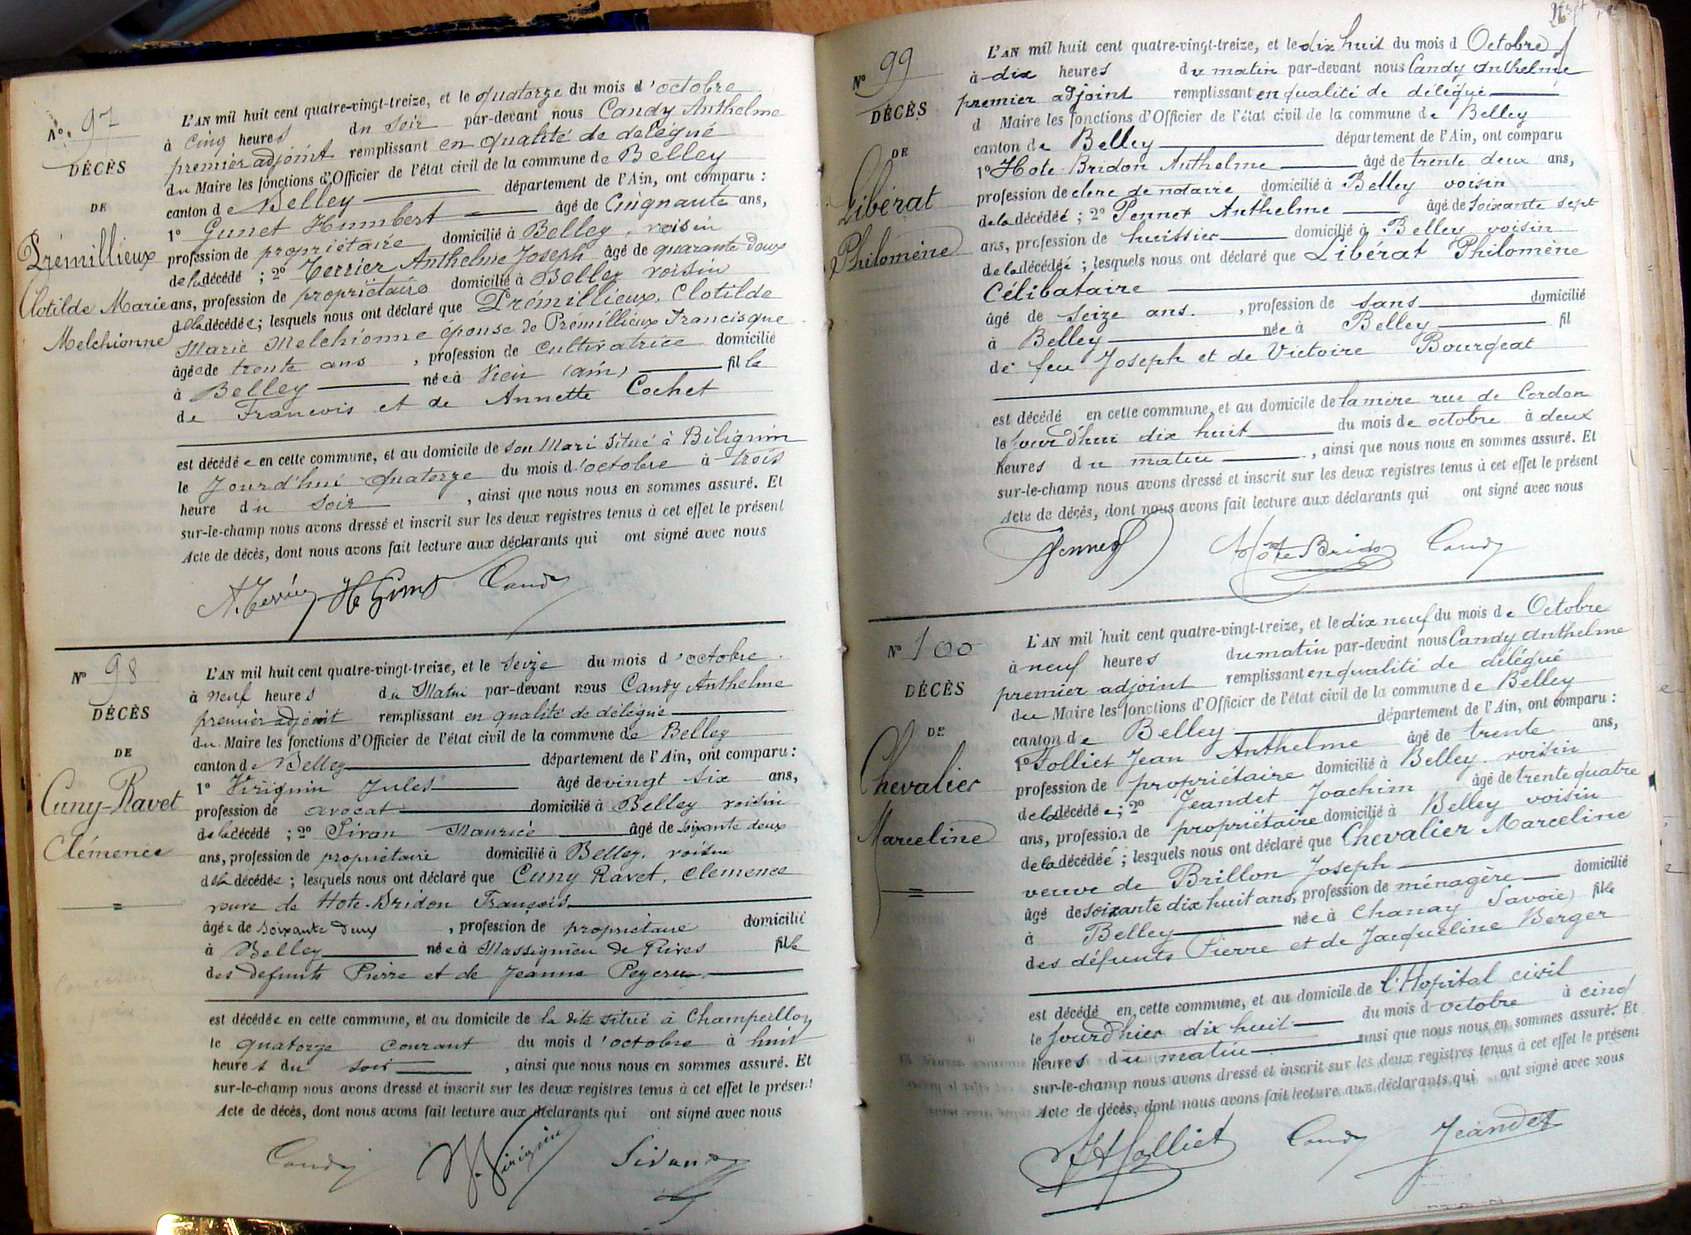 N° 97
DÉCÈS
DE
Prémillieux
Clotilde Marie
Melchionne
L'AN mil huit cent quatre-vingt-treize, et le quatorze du mois d'octobre
à cinq heures du soir par-devant nous Candy Anthelme
premier adjoint remplissant en qualité de délégué
du Maire les fonctions d'Officier de l'état civil de la commune de Belley
canton de Belley département de l'Ain, ont comparu :
1° Gunet Humbert âgé de Cinquante ans,
profession de propriétaire domicilié à Belley, voisin
de la décédé ; 2° Terrier Anthelme Joseph âgé de quarante deux
ans, profession de propriétaire domicilié à Belley voisin
de la décédée ; lesquels nous ont déclaré que Prémillieux, Clotilde
Marie Melchionne épouse de Prémillieux Francisque
âgée de trente ans, profession de cultivatrice domicilié
à Belley née à Vieu (ain) fille
de Francois et de Annette Cochet
est décédée en cette commune, et au domicile de son Mari situé à Bilignin
le jourd'hui quatorze du mois d'octobre à trois
heure du soir, ainsi que nous nous en sommes assuré. Et
sur-le-champ nous avons dressé et inscrit sur les deux registres tenus à cet effet le présent
Acte de décès, dont nous avons fait lecture aux déclarants qui ont signé avec nous
A. Terrier Candy
N° 98
DÉCÈS
DE
Cuny-Ravet
Clémence
L'AN mil huit cent quatre-vingt-treize, et le seize du mois d'octobre
à neuf heures du Matin par-devant nous Candy Anthelme
premier adjoint remplissant en qualité de délégué
du Maire les fonctions d'Officier de l'état civil de la commune de Belley
canton de Belley département de l'Ain, ont comparu :
1° Virignin Jules âgé de vingt six ans,
profession de avocat domicilié à Belley voisin
de la décédé ; 2° Sivan Maurice âgé de soixante deux
ans, profession de propriétaire domicilié à Belley, voisin
de la décédée ; lesquels nous ont déclaré que Cuny Ravet, Clemence
veuve de Hote-Bridon François
âgée de soixante deux, profession de propriétaire domicilié
à Belley née à Massignieu de Rives fille
des defunts Pierre et de Jeanne
est décédée en cette commune, et au domicile de la dite situé à Champeillon
le quatorze courant du mois d'octobre à huit
heures du soir, ainsi que nous nous en sommes assuré. Et
sur-le-champ nous avons dressé et inscrit sur les deux registres tenus à cet effet le présent
Acte de décès, dont nous avons fait lecture aux déclarants qui ont signé avec nous
Candy J. Virignin Sivan
N° 99
DÉCÈS
DE
Libérat
Philomène
L'AN mil huit cent quatre-vingt-treize, et le dix huit du mois d Octobre
à dix heures du matin par-devant nous Candy Anthelme
premier adjoint remplissant en qualité de délégué
d Maire les fonctions d'Officier de l'état civil de la commune de Belley
canton de Belley département de l'Ain, ont comparu
1° Hote-Bridon Anthelme âgé de trente deux ans,
profession de clerc de notaire domicilié à Belley voisin
de la décédée ; 2° Pennet Anthelme âgé de soixante sept
ans, profession de huissier domicilié à Belley voisin
de la décédée ; lesquels nous ont déclaré que Libérat Philomène
Célibataire
âgé de seize ans., profession de sans domicilié
à Belley née à Belley fil
de feu Joseph et de Victoire Bourgeat
est décédé en cette commune, et au domicile de la mère rue de Cordon
le jourd'hui dix huit du mois de octobre à deux
heures du matin, ainsi que nous nous en sommes assuré. Et
sur-le-champ nous avons dressé et inscrit sur les deux registres tenus à cet effet le présent
Acte de décès, dont nous avons fait lecture aux déclarants qui ont signé avec nous
Pennet Hote-Bridon Candy
N° 100
DÉCÈS
DE
Chevalier
Marceline
L'AN mil huit cent quatre-vingt-treize, et le dix neuf du mois de Octobre
à neuf heures du matin par-devant nous Candy Anthelme
premier adjoint remplissant en qualité de délégué
du Maire les fonctions d'Officier de l'état civil de la commune de Belley
canton de Belley département de l'Ain, ont comparu :
1° Jolliet Jean Anthelme âgé de trente ans,
profession de propriétaire domicilié à Belley voisin
de la décédée ; 2° Jeandet Joachim âgé de trente quatre
ans, profession de propriétaire domicilié à Belley voisin
de la décédéé ; lesquels nous ont déclaré que Chevalier Marceline
veuve de Brillon Joseph
âgé de soixante dix huit ans, profession de ménagère domicilié
à Belley née à Chanay Savoie) fille
des défunts Pierre et de Jacqueline Berger
est décédé en cette commune, et au domicile de l'Hopital civil
le jourd'hier dix huit du mois d octobre à cinq
heures du matin ainsi que nous nous en sommes assuré. Et
sur-le-champ nous avons dressé et inscrit sur les deux registres tenus à cet effet le présent
Acte de décès, dont nous avons fait lecture aux déclarants qui ont signé avec nous
JA Jolliet Candy Jeandet